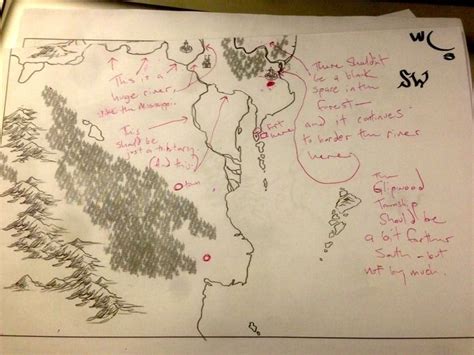 This is a
huge river,
like the Mississippi.
This
should be
just a tributary.
(And this)
There shouldn't
be a blank
space in the
forest—
and it continues
to border the river
here
Fort
town
The
Glipwood
Township
Should be
a bit farther
South - but
not by much.
W
SW